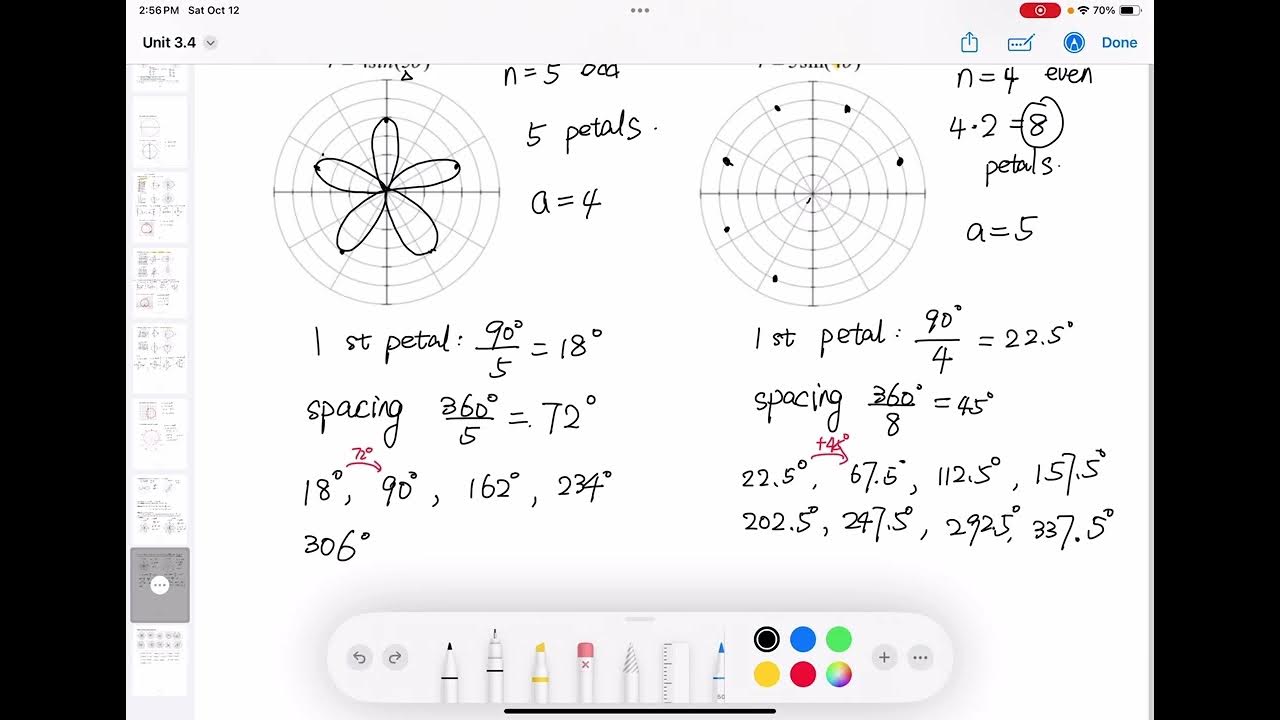 2:56 PM Sat Oct 12
70%
Unit 3.4
Done
n = 5 odd
5 petals.
a = 4
1 st petal: 90°/5 = 18°
spacing 360°/5 = 72°
72°
18°, 90°, 162°, 234°
306°
n = 4 even
4·2 = 8
petals.
a = 5
1 st petal: 90°/4 = 22.5°
spacing 360°/8 = 45°
+45°
22.5°, 67.5°, 112.5°, 157.5°
202.5°, 247.5°, 292.5°, 337.5°